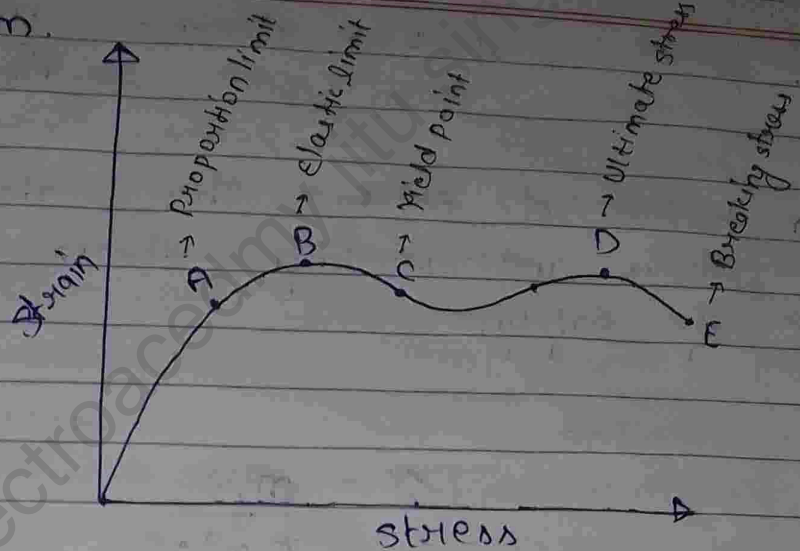 3.
A → Proportion limit
B → Elastic limit
C → Yield point
D → Ultimate stress
E → Breaking stress
Strain
stress